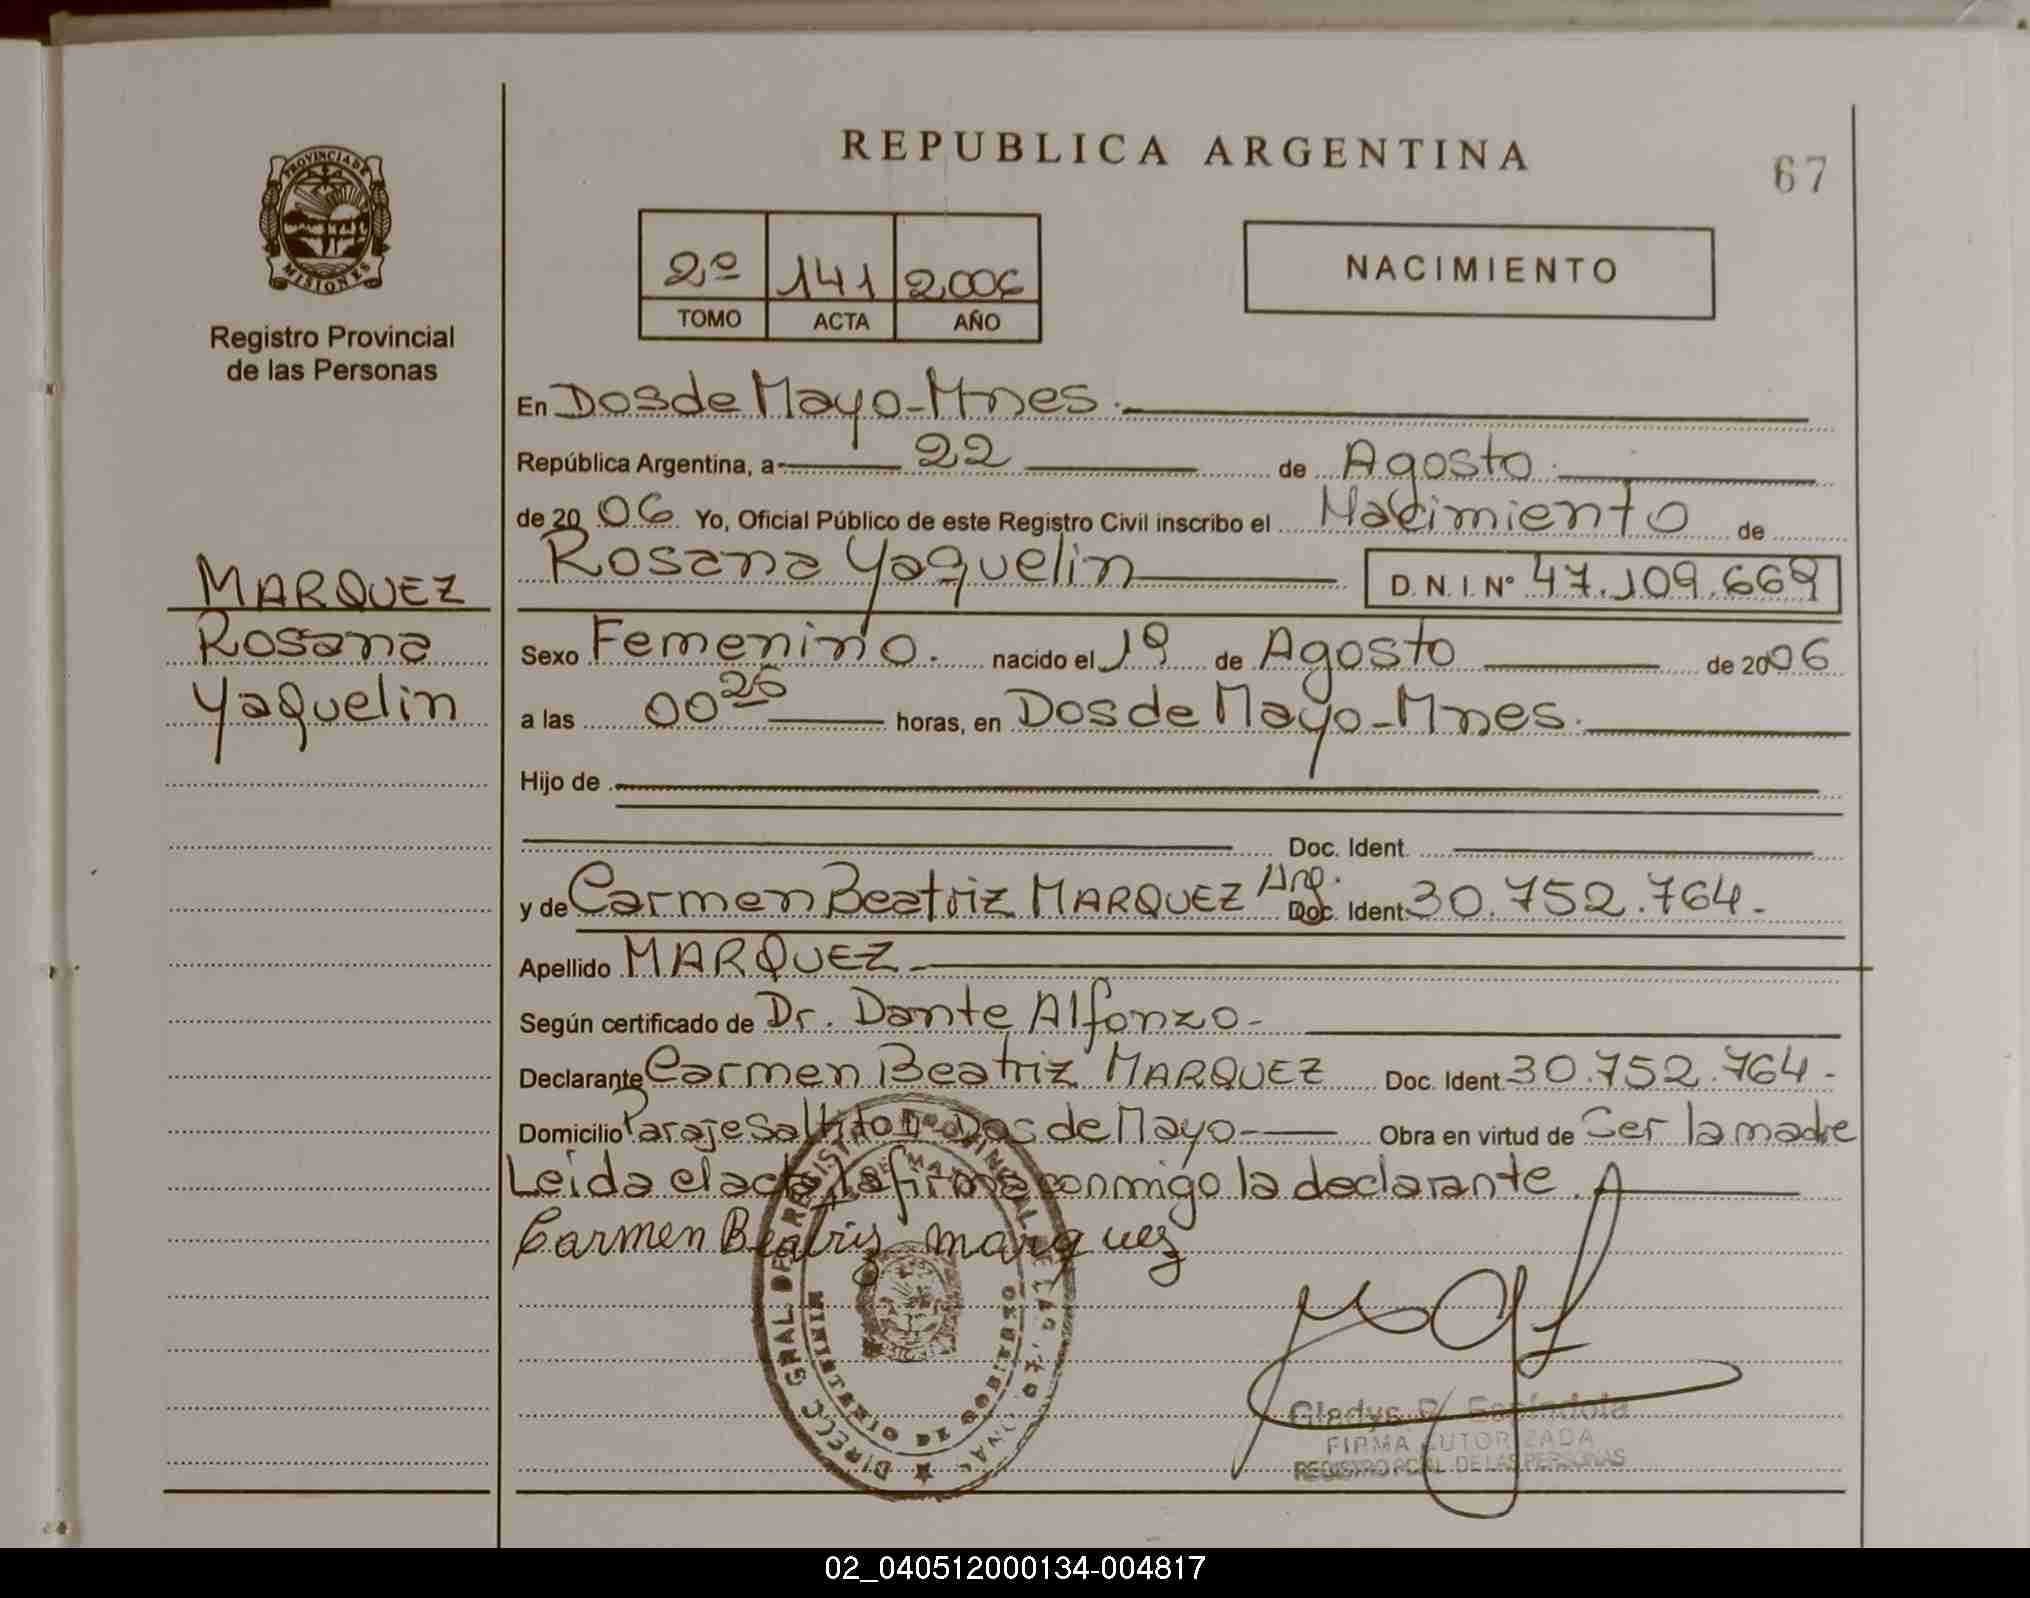 REPUBLICA ARGENTINA
67
PROVINCIA DE
MISIONES
Registro Provincial
de las Personas
2º 141 2006
TOMO ACTA AÑO
NACIMIENTO
En Dos de Mayo-Mnes.
República Argentina, a 22 de Agosto
de 2006 Yo, Oficial Público de este Registro Civil inscribo el Nacimiento de
Rosana Yaquelin D.N.I. Nº 47.109.669
MARQUEZ
Rosana
Yaquelin
Sexo Femenino. nacido el 19 de Agosto de 2006
a las 00 25 horas, en Dos de Mayo-Mnes.
Hijo de
Doc. Ident.
y de Carmen Beatriz MARQUEZ Arg. Doc. Ident. 30.752.764.-
Apellido MARQUEZ-
Según certificado de Dr. Dante Alfonzo-
Declarante Carmen Beatriz MARQUEZ Doc. Ident. 30.752.764-
Domicilio Paraje Saltito Dos de Mayo- Obra en virtud de Ser la madre
Leída el acta, la firma conmigo la declarante.
Carmen Beatriz marquez
Gladys Espíndola
FIRMA AUTORIZADA
REGISTRO PCIAL. DE LAS PERSONAS
02_040512000134-004817